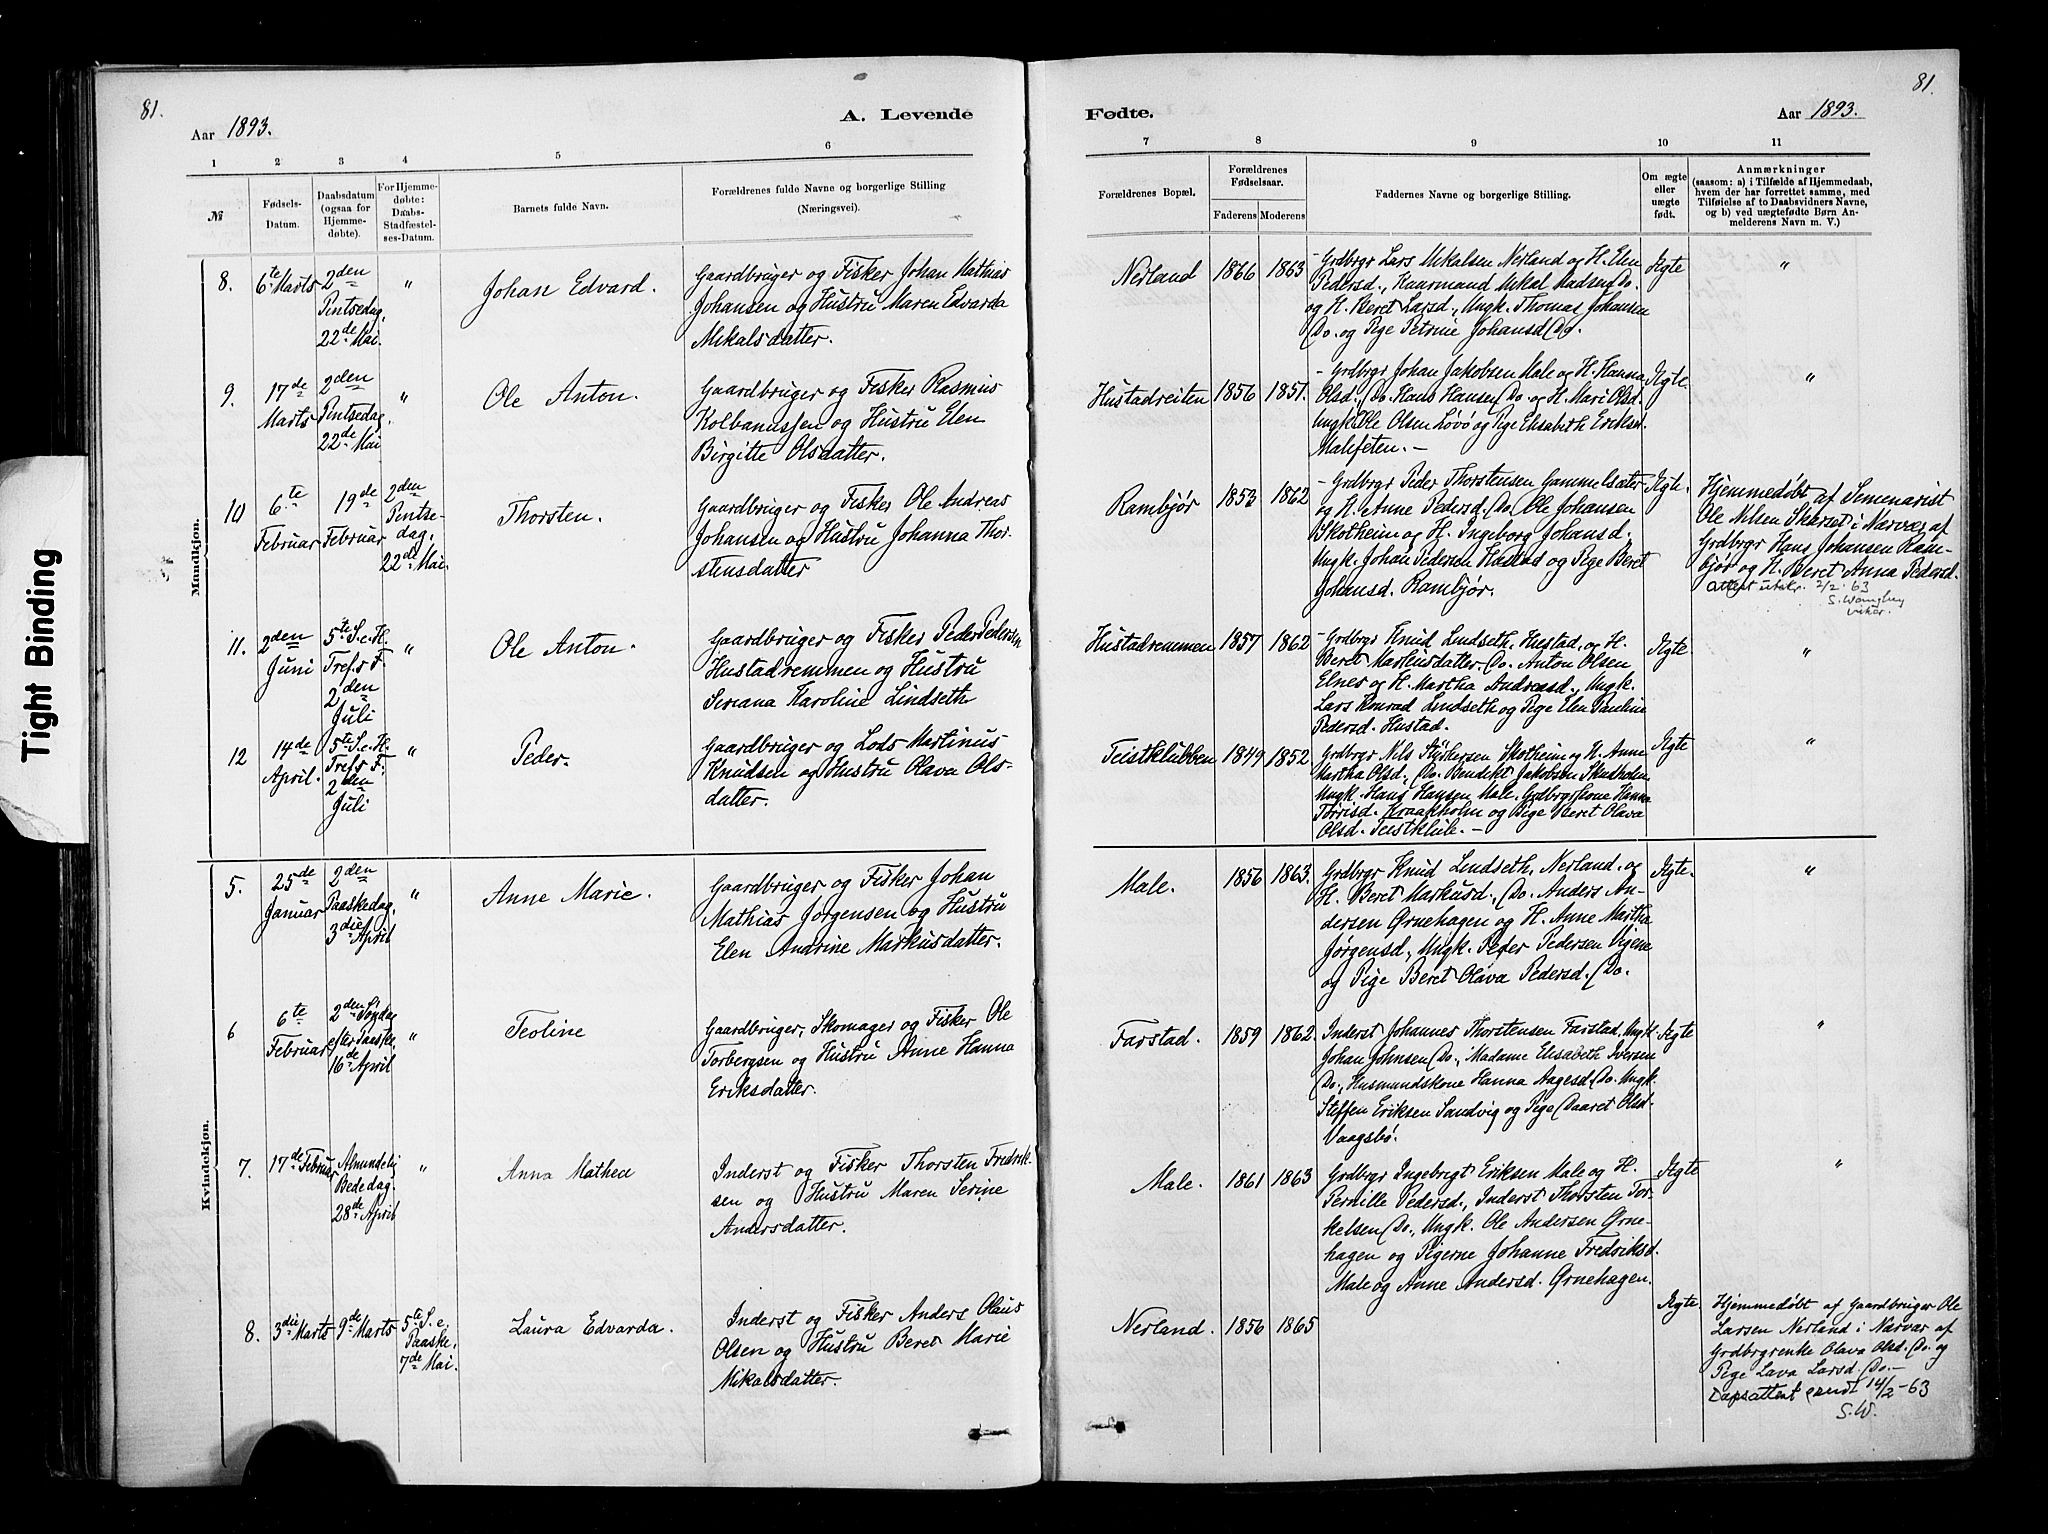 Tight Binding
81.
Aar 1893.
A. Levende
1 2 3 4 5 6
№
Fødsels-
Datum.
Daabsdatum
(ogsaa for
Hjemme-
døbte).
For Hjemme-
døbte:
Daabs-
Stadfæstel-
ses-Datum.
Barnets fulde Navn.
Forældrenes fulde Navne og borgerlige Stilling
(Næringsvei).
Mandkjøn.
8.
6te Marts
2den
Pintsedag,
22de Mai.
"
Johan Edvard.
Gaardbruger og Fisker Johan Mathias
Johansen og Hustru Maren Edvarda
Mikalsdatter.
9.
17de
Marts
2den
Pintsedag,
22de Mai
"
Ole Anton.
Gaardbruger og Fisker Rasmus
Kolbanussen og Hustru Elen
Birgitte Olsdatter.
10
6te
Februar
19de
Februar
2den
Pintse-
dag,
22de Mai.
Thorsten.
Gaardbruger og Fisker Ole Andreas
Johansen og Hustru Johanna Thor-
stensdatter
11.
2den
Juni
5te S. e. H.
Tref.s F.
2den
Juli
"
Ole Anton.
Gaardbruger og Fisker Peder Pedersen
Hustadremmen og Hustru
Seriana Karoline Lindseth
12
14de
April.
5te S. e. H.
Tref.s F.
2den
Juli
"
Peder.
Gaardbruger og Lods Martinus
Knudsen og Hustru Olava Ols-
datter.
Kvindekjøn.
5.
25de
Januar
2den
Paaskedag,
3die April
"
Anne Marie.
Gaardbruger og Fisker Johan
Mathias Jørgensen og Hustru
Elen Andrine Markusdatter.
6
6te
Februar
2den Søndag
efter Paaske
16de April
"
Teoline
Gaardbruger, Skomager og Fisker Ole
Torbergsen og Hustru Anne Hanna
Eriksdatter.
7.
17de Februar
Almindelig
Bededag.
28de April
"
Anna Mathea
Inderst og Fisker Thorsten Fredrik-
sen og Hustru Maren Serine
Andersdatter.
8.
3die Marts
9de Marts
5te S. e.
Paaske,
7de Mai.
Laura Edvarda.
Inderst og Fisker Anders Olaus
Olsen og Hustru Beret Marie
Mikalsdatter.
81.
Fødte.
Aar 1893.
7 8 9 10 11
Forældrenes Bopæl.
Forældrenes
Fødselsaar.
Faderens Moderens
Faddernes Navne og borgerlige Stilling.
Om ægte
eller
uægte
født.
Anmærkninger
(saasom: a) i Tilfælde af Hjemmedaab,
hvem der har forrettet samme, med
Tilføielse af to Daabsvidners Navne,
og b) ved uægtefødte Børn An-
melderens Navn m. V.)
Nerland 1866 1863
- Grdbrgr Lars Mikalsen Nerland og H. Elen
Pedersd., Kaarmand Mikal Madsen Do.
og H. Beret Larsd., Ungk. Thomas Johansen
Do. og Pige Petrine Johansd. Do.
Ægte
"
Hustadreiten 1856 1851.
- Grdbrgr Johan Jakobsen Male og H. Hanna
Olsd., Do. Hans Hansen Do. og H. Mari Olsd.
Ungk. Ole Olsen Løvø og Pige Elisabeth Eriksd.
Malefeten. -
Ægte.
"
Rambjør 1853 1862
- Grdbrgr Peder Thorstensen Gammelsæter
og H. Anne Pedersd., Do. Ole Johansen
Skotheim og H. Ingeborg Johansd.
Ungk. Johan Pedersen Hustad og Pige Beret
Johansd. Rambjør.
Ægte.
Hjemmedøbt af Semenarist
Ole Nilsen Skarset i Nærvær af
Grdbrgr Hans Johansen Ram-
bjør og H. Beret Anna Pedersd.
Attest utskr. 2/2-63
vikar.
Hustadremmen 1857 1862
- Grdbrgr Knud Lindseth, Hustad, og H.
Beret Markusdatter, Do. Anton Olsen
Elnes og H. Martha Andreasd., Ungk.
Lars Konrad Lindseth og Pige Elen Pauline
Pedersd. Hustad.
Ægte
"
Teistklubben 1849 1852
Grdbrgr Nils Styrkersen Skotheim og H. Anne
Martha Olsd., Do. Bendikt Jakobsen Skudholm
Ungk. Hans Hansen Male, Grdbrgrskone Hanna
Torrisd. Kraakholm og Pige Beret Olava
Olsd. Teistklub. -
Ægte
"
Male. 1856 1863.
Grdbrgr Knud Lindseth, Nerland, og
H. Beret Markusd., Do. Anders An-
dersen Ørnehagen og H. Anne Martha
Jørgensd., Ungk. Peder Pedersen Vigene
og Pige Beret Olava Pedersd. Do.
Ægte.
"
Farstad. 1859 1862.
Inderst Johannes Thorstensen Farstad, Ungk.
Johan Johnsen Do., Madame Elisabeth Iversen
Do., Husmandskone Hanna Aagesd. Do. Ungk.
Steffen Eriksen Sandvig og Pige Daaret Olsd.
Vaagsbø.
Ægte
"
Male. 1861 1863
Grdbrgr Ingebrigt Eriksen Male og H.
Pernille Pedersd., Inderst Thorsten Tor-
kelsen Do., Ungk. Ole Andersen Ørne-
hagen og Pigerne Johanne Fredriksd.
Male og Anne Andersd. Ørnehagen.
Ægte
"
Nerland. 1856 1865
Ægte
Hjemmedøbt af Gaardbruger Ole
Larsen Nerland i Nærvær af
Grdbrgrenke Olava Olsd. Do. og
Pige Lava Larsd. Do. -
Dåpsattest sendt 14/2-63
S.W.